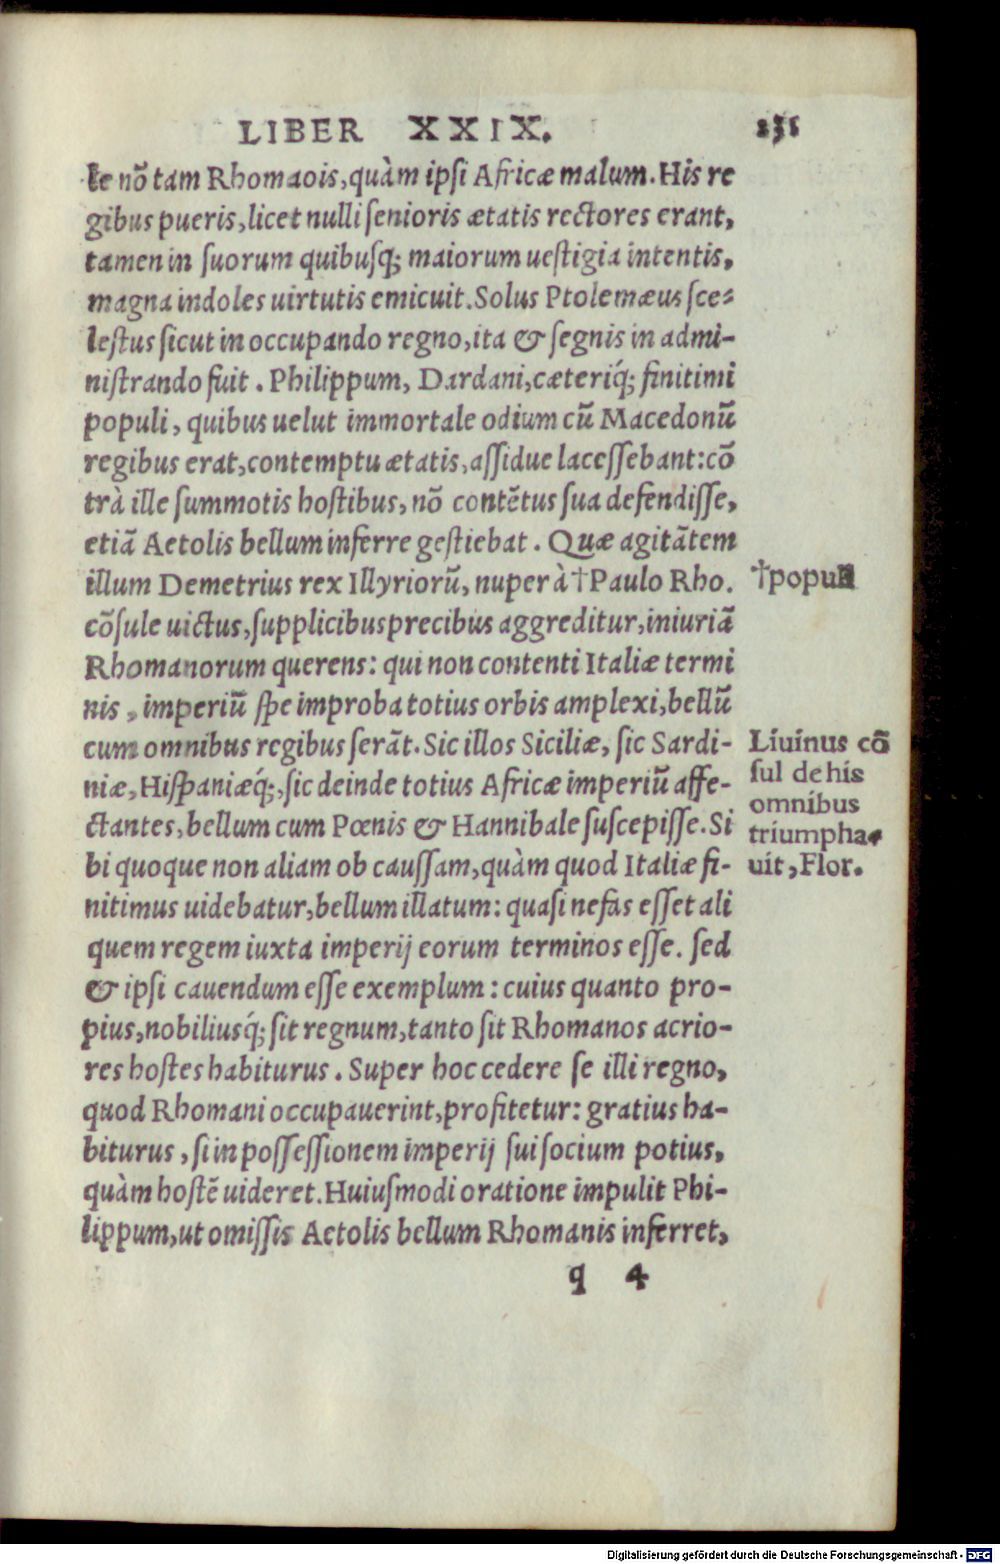 LIBER XXIX. 231
le nõ tam Rhomaois, quàm ipsi Africæ malum. His re
gibus pueris, licet nulli senioris ætatis rectores erant,
tamen in suorum quibusq; maiorum uestigia intentis,
magna indoles uirtutis emicuit. Solus Ptolemæus sce-
lestus sicut in occupando regno, ita & segnis in admi-
nistrando fuit. Philippum, Dardani, cæteriq́; finitimi
populi, quibus uelut immortale odium cũ Macedonũ
regibus erat, contemptu ætatis, assidue lacessebant: cõ
trà ille summotis hostibus, nõ contẽtus sua defendisse,
etiã Aetolis bellum inferre gestiebat. Quæ agitãtem
illum Demetrius rex Illyriorũ, nuper à †Paulo Rho.
cõsule uictus, supplicibus precibus aggreditur, iniuriã
Rhomanorum querens: qui non contenti Italiæ termi
nis, imperiũ spe improba totius orbis amplexi, bellũ
cum omnibus regibus serãt. Sic illos Siciliæ, sic Sardi-
niæ, Hispaniæq́;, sic deinde totius Africæ imperiũ affe-
ctantes, bellum cum Pœnis & Hannibale suscepisse. Si
bi quoque non aliam ob caussam, quàm quod Italiæ fi-
nitimus uidebatur, bellum illatum: quasi nefas esset ali
quem regem iuxta imperij eorum terminos esse. sed
& ipsi cauendum esse exemplum: cuius quanto pro-
pius, nobiliusq́; sit regnum, tanto sit Rhomanos acrio-
res hostes habiturus. Super hoc cedere se illi regno,
quod Rhomani occupauerint, profitetur: gratius ha-
biturus, si in possessionem imperij sui socium potius,
quàm hostẽ uideret. Huiusmodi oratione impulit Phi-
lippum, ut omissis Aetolis bellum Rhomanis inferret,
q 4
†populi
Liuinus cõ
sul de his
omnibus
triumpha-
uit, Flor.
Digitalisierung gefördert durch die Deutsche Forschungsgemeinschaft - DFG